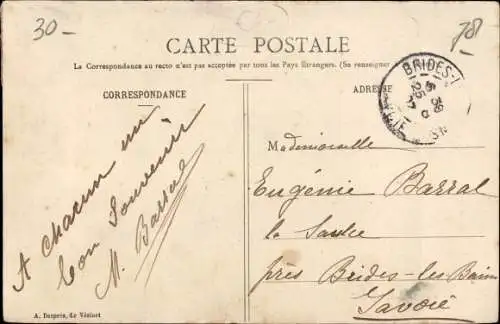 30-
78
CARTE POSTALE
La Correspondance au recto n'est pas acceptée par tous les Pays Étrangers. (Se renseigner
CORRESPONDANCE
ADRESSE
BRIDES-L
A chacun un
bon souvenir
M. Barral
Mademoiselle
Eugénie Barral
la Saulce
près Brides-les Bains
Savoie
A. Desprin, de Vésinet